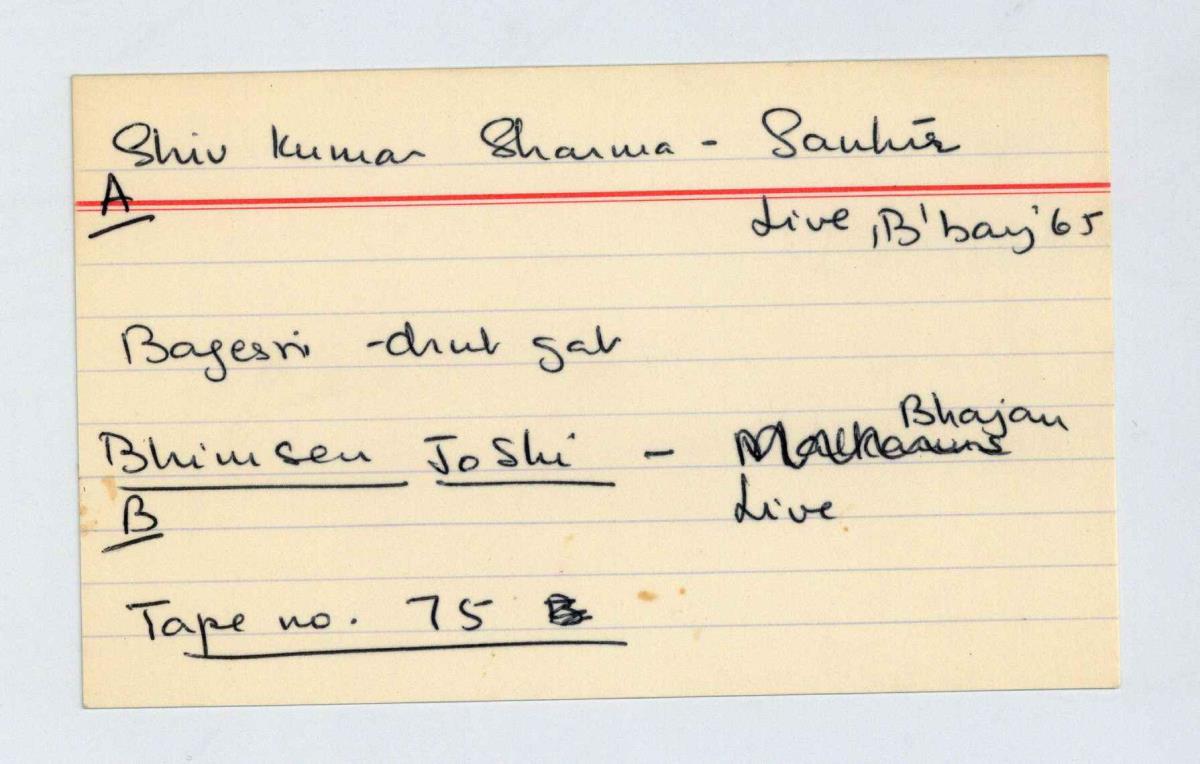 Shiv Kumar Sharma - Santūr
A
Live, B'bay '65
Bagesri - drut gat
Bhimsen Joshi - Bhajan
B Live
Tape no. 75